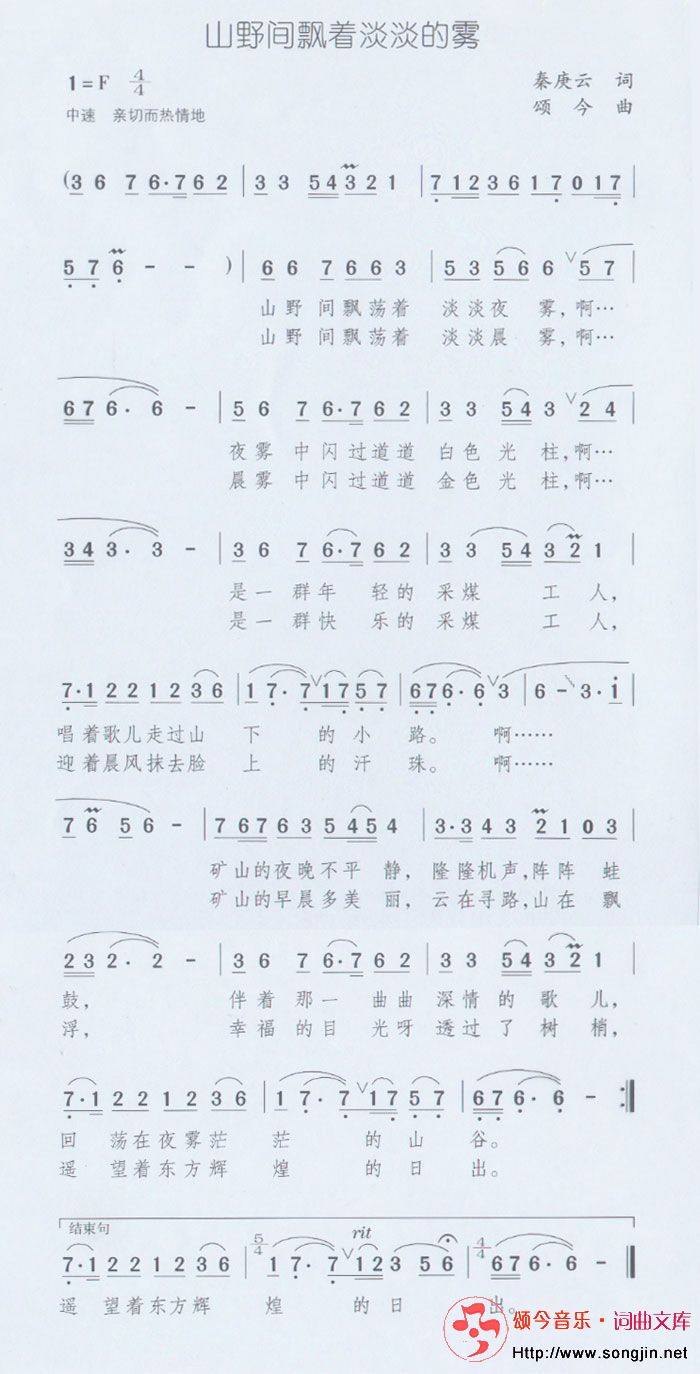 山野间飘着淡淡的雾
1=F 4/4
秦庚云 词
中速 亲切而热情地
颂今 曲
(3 6 7 6·7 6 2 | 3 3 5 4 3 2 1 | 7 1 2 3 6 1 7 0 1 7 |
5 7 6 - - ) | 6 6 7 6 6 3 | 5 3 5 6 6 ∨ 5 7 |
山野间飘荡着 淡淡夜雾,啊…
山野间飘荡着 淡淡晨雾,啊…
6 7 6· 6 - | 5 6 7 6·7 6 2 | 3 3 5 4 3 ∨ 2 4 |
夜雾中闪过道道 白色光柱,啊…
晨雾中闪过道道 金色光柱,啊…
3 4 3· 3 - | 3 6 7 6·7 6 2 | 3 3 5 4 3 2 1 |
是一群年轻的采煤工人,
是一群快乐的采煤工人,
7·1 2 2 1 2 3 6 | 1 7· 7 ∨ 1 7 5 7 | 6 7 6· 6 ∨ 3 | 6 - 3·i |
唱着歌儿走过山下的小路。 啊……
迎着晨风抹去脸上的汗珠。 啊……
7 6 5 6 - | 7 6 7 6 3 5 4 5 4 | 3·3 4 3 2 1 0 3 |
矿山的夜晚不平静,隆隆机声,阵阵蛙
矿山的早晨多美丽,云在寻路,山在飘
2 3 2· 2 - | 3 6 7 6·7 6 2 | 3 3 5 4 3 2 1 |
鼓, 伴着那一曲曲深情的歌儿,
浮, 幸福的目光呀透过了树梢,
7·1 2 2 1 2 3 6 | 1 7· 7 ∨ 1 7 5 7 | 6 7 6· 6 - :‖
回荡在夜雾茫茫的山谷。
遥望着东方辉煌的日出。
结束句 rit
7·1 2 2 1 2 3 6 | 5/4 1 7· 7 ∨ 1 2 3 5 6 | 4/4 6 7 6· 6 - ‖
遥望着东方辉煌的日出。
颂今音乐·词曲文库
Http://www.songjin.net